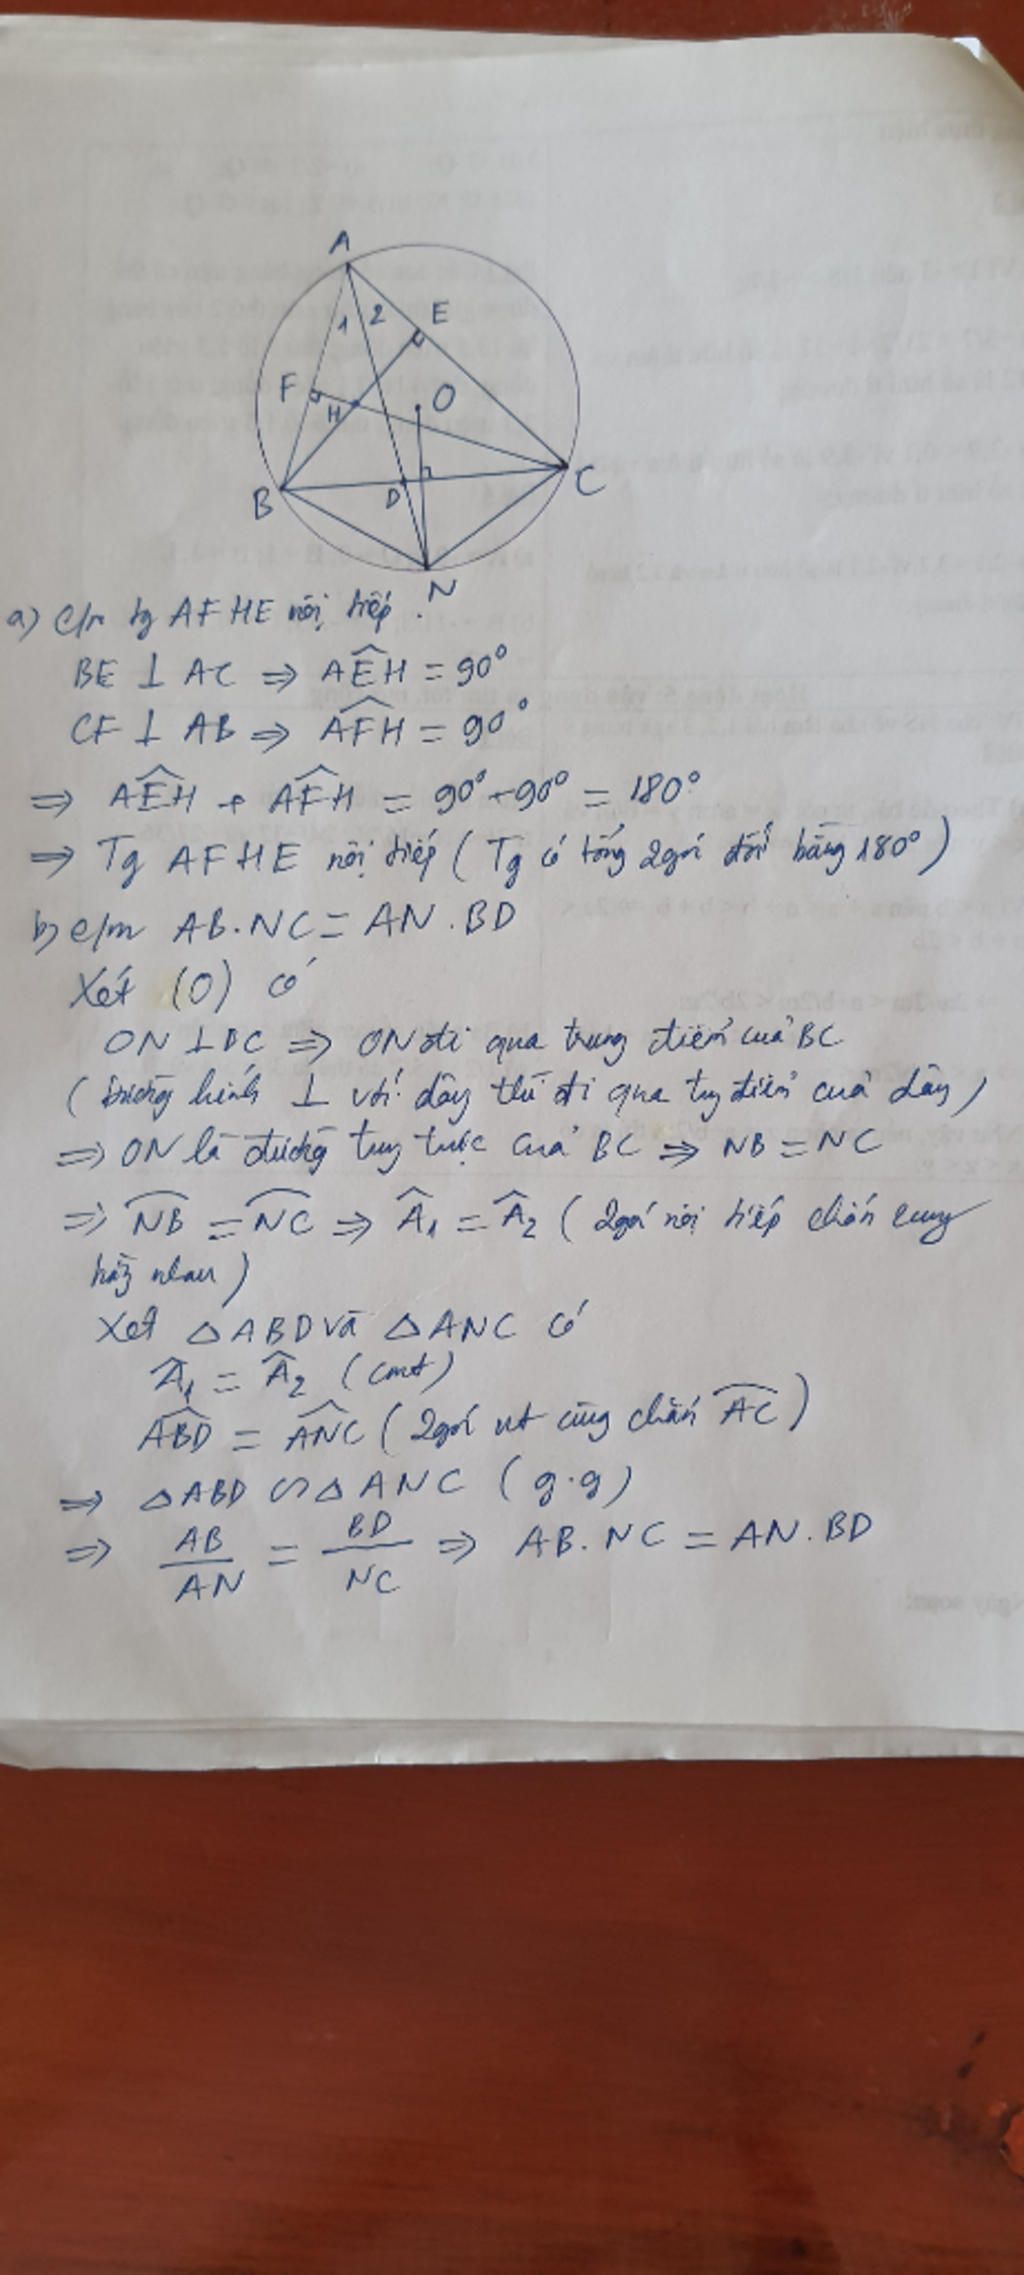 A
1 2 E
F H O
B D C
N
a) c/m tg AFHE nội tiếp.
BE ⊥ AC ⇒ AÊH = 90°
CF ⊥ AB ⇒ AF̂H = 90°
⇒ AÊH + AF̂H = 90° + 90° = 180°
⇒ Tg AFHE nội tiếp (Tg có tổng 2 góc đối bằng 180°)
b) c/m AB.NC = AN.BD
Xét (O) có
ON ⊥ BC ⇒ ON đi qua trung điểm của BC
(Đường kính ⊥ với dây thì đi qua tng điểm của dây)
⇒ ON là đường trung trực của BC ⇒ NB = NC
⇒ N͡B = N͡C ⇒ Â₁ = Â₂ (2 góc nội tiếp chắn cung
bằng nhau)
Xét △ABD và △ANC có
Â₁ = Â₂ (cmt)
AB̂D = AN̂C (2 góc nt cùng chắn A͡C)
⇒ △ABD ∽ △ANC (g.g)
⇒ AB/AN = BD/NC ⇒ AB.NC = AN.BD